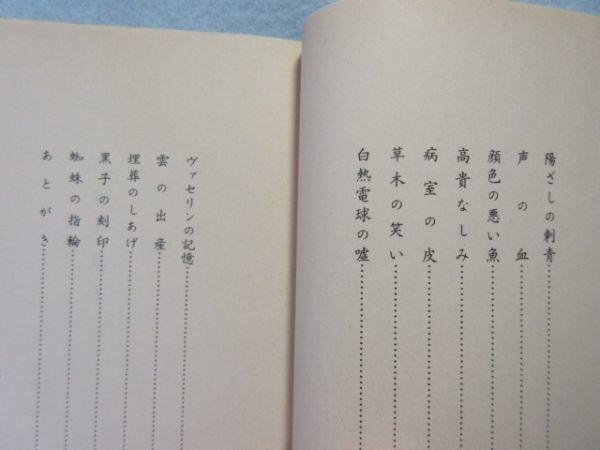 陽ざしの刺青
声の血
顔色の悪い魚
高貴なしみ
病室の皮
草木の笑い
白熱電球の嘘
ヴァセリンの記憶
雲の出産
埋葬のしあげ
黒子の刻印
蜘蛛の指輪
あとがき